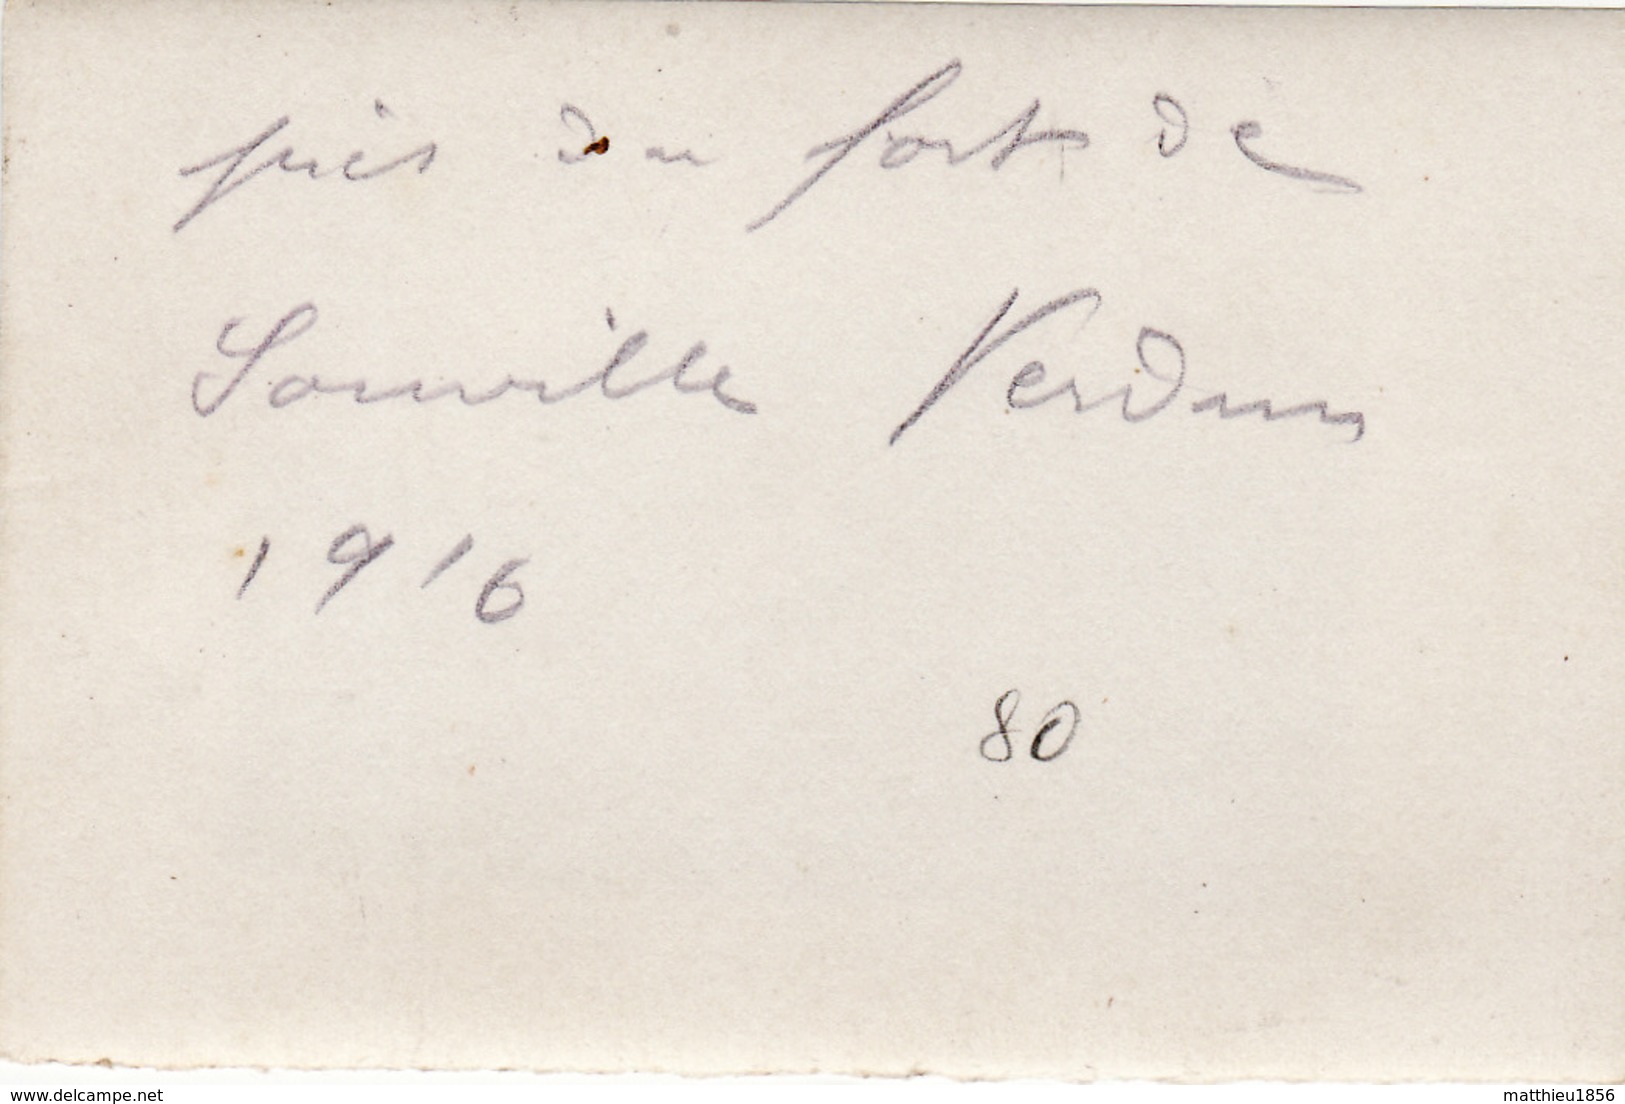 près du fort de
Souville Verdun
1916
80
www.delcampe.net
matthieu1856